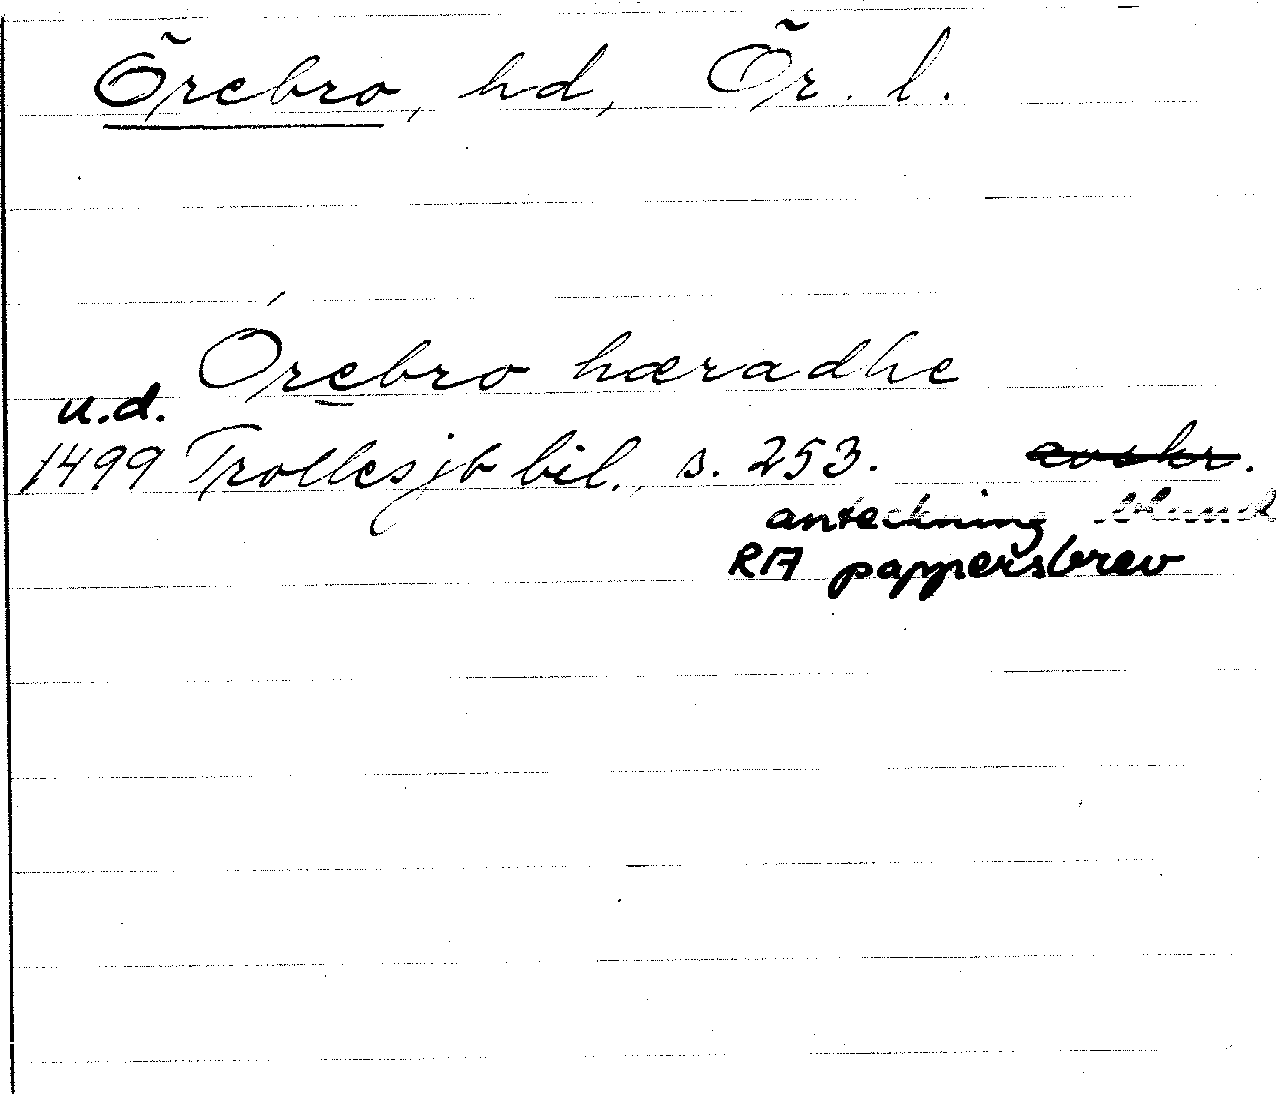 Örebro, hd, Ör. l.
Órebro hæradhe
u.d.
1499 Trolles jb bil., s. 253. avskr.
anteckning bland
RA pappersbrev